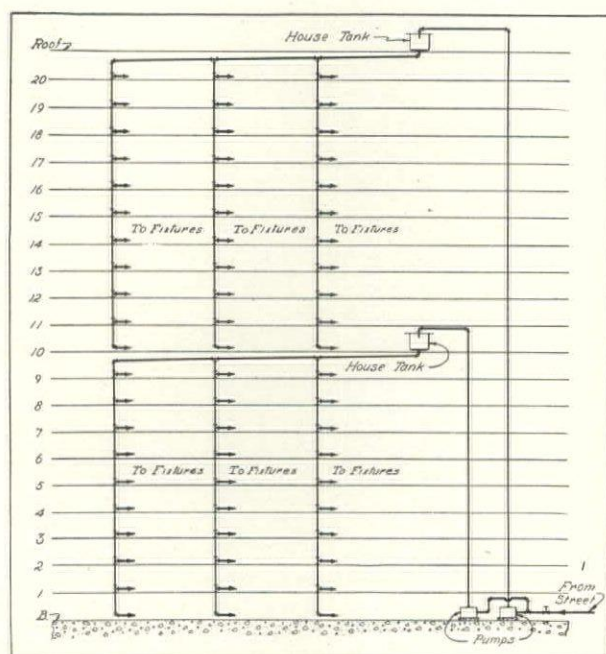 House Tank
Roof
20
19
18
17
16
15
To Fixtures To Fixtures To Fixtures
14
13
12
11
10
House Tank
9
8
7
6
To Fixtures To Fixtures To Fixtures
5
4
3
2
1
From
Street
B
Pumps